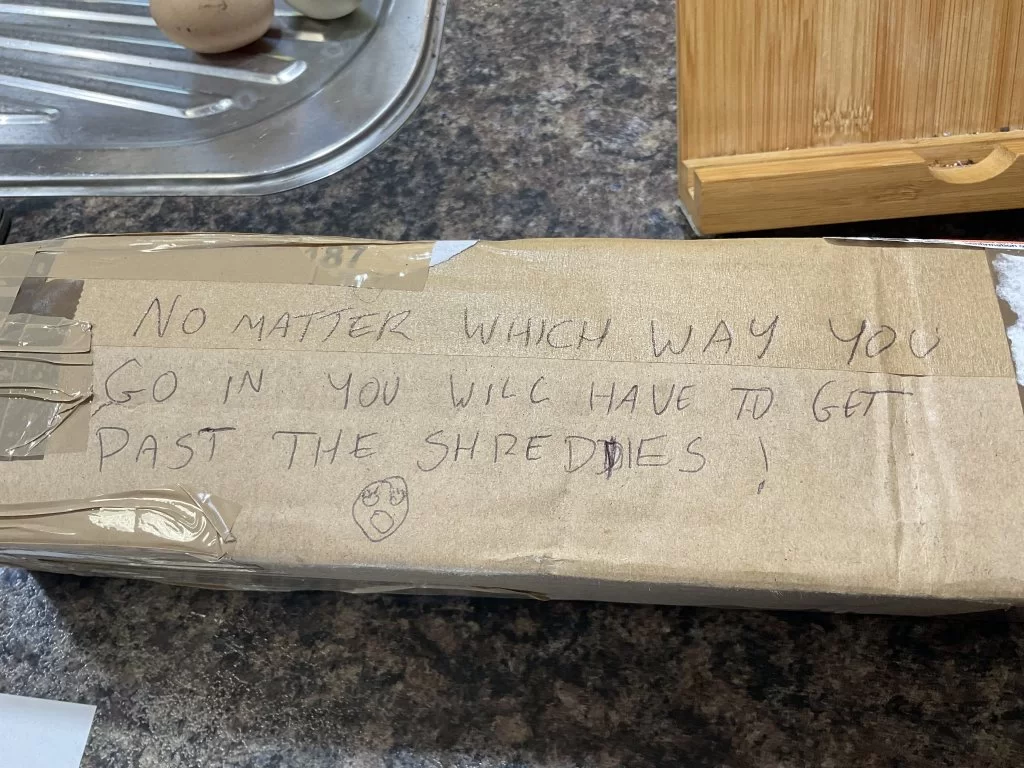 187
formation
NO MATTER WHICH WAY YOU
GO IN YOU WILL HAVE TO GET
PAST THE SHREDDIES !